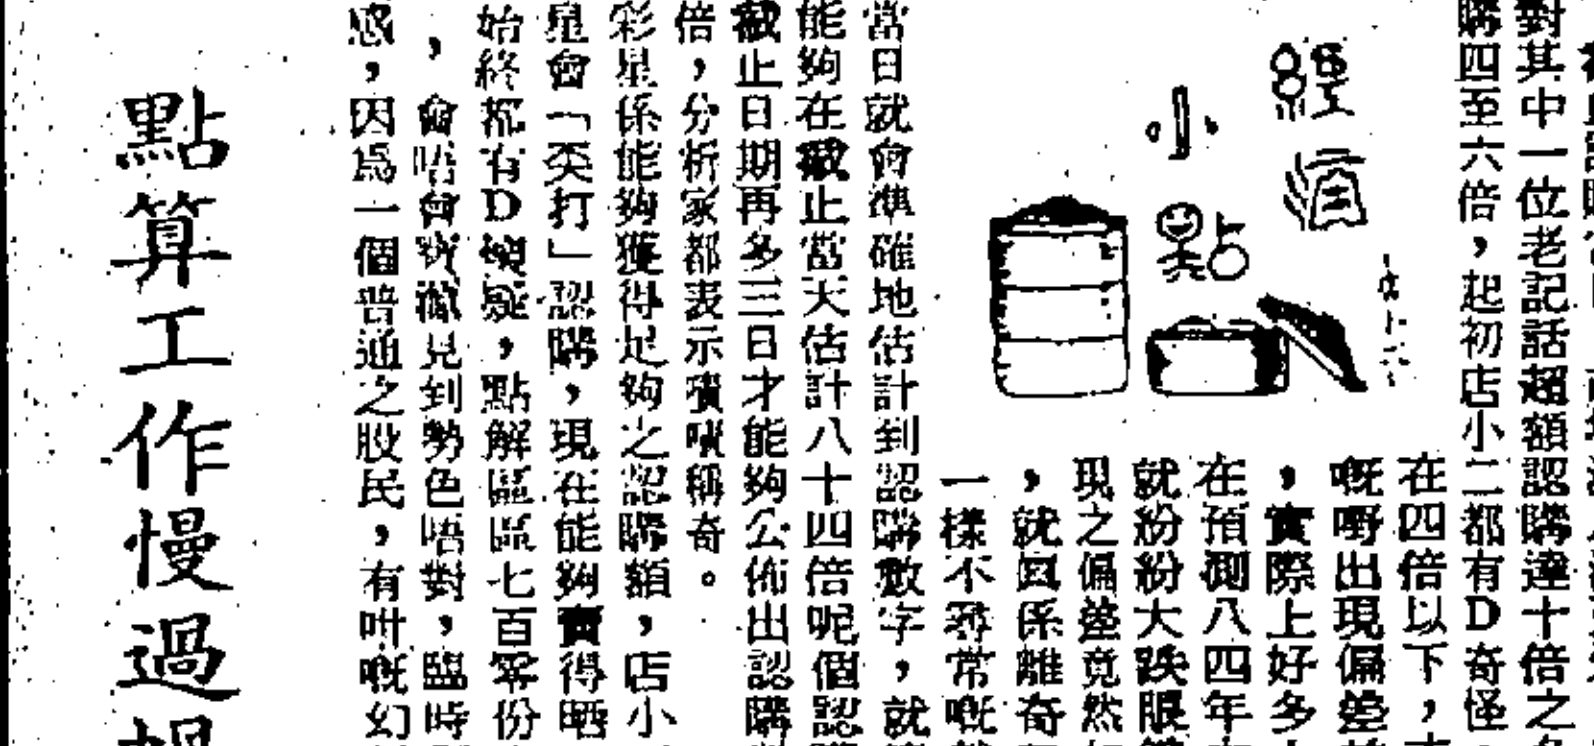 對其中一位老記話超額認購達十倍之
購四至六倍，起初店小二都有D奇怪
在四倍以下，
嘅嘢出現偏差
，實際上好多
在預測八四年
就紛紛大跌眼
現之偏差竟然
，就因係離奇
一樣不尋常嘅
經濟
小點
當日就會準確地估計到認購數字，就
能夠在截止當天估計八十四倍呢個認
截止日期再多三日才能夠公佈出認購
倍，分析家都表示嘖嘖稱奇。
彩星係能夠獲得足夠之認購額，店小
星會「孖打」認購，現在能夠賣得晒
始終都有D懷疑，點解區區七百零份
，會唔會睇見到勢色唔對，臨時
感，因爲一個普通之股民，有咁嘅幻
點算工作慢過